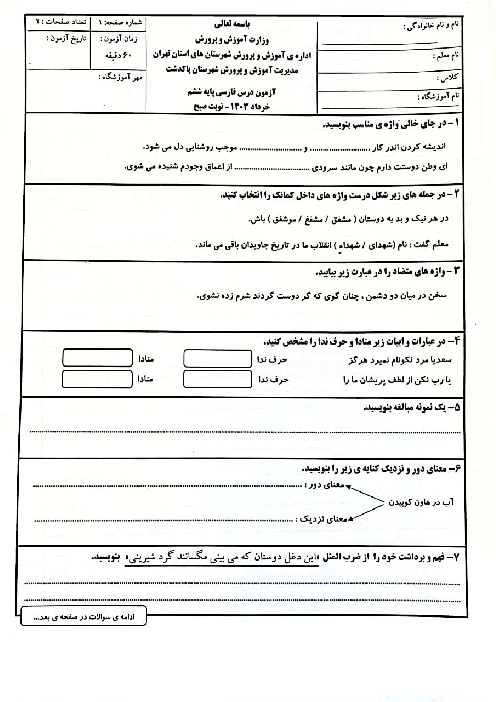 نام و نام خانوادگی:
نام معلم:
کلاس:
نام آموزشگاه:
باسمه تعالی
وزارت آموزش و پرورش
اداره ی آموزش و پرورش شهرستان های استان تهران
مدیریت آموزش و پرورش شهرستان پاکدشت
آزمون درس فارسی پایه ششم
خرداد ۱۴۰۳ - نوبت صبح
شماره صفحه: ۱
زمان آزمون:
۶۰ دقیقه
مهر آموزشگاه:
تعداد صفحات: ۲
تاریخ آزمون:
۱- در جای خالی واژه ی مناسب بنویسید.
اندیشه کردن اندر کار .......................... و .......................... موجب روشنایی دل می شود.
ای وطن دوستت دارم چون مانند سرودی .......................... از اعماق وجودم شنیده می شوی.
۲- در جمله های زیر شکل درست واژه های داخل کمانک را انتخاب کنید.
در هر نیک و بد به دوستان ( مشفق / مشفغ / موشفق ) باش.
معلم گفت : نام (شهدای / شهداءِ ) انقلاب ما در تاریخ جاویدان باقی می ماند.
۳- واژه های متضاد را در عبارت زیر بیابید.
سخن در میان دو دشمن ، چنان گوی که گر دوست گردند شرم زده نشوی.
۴- در عبارات و ابیات زیر منادا و حرف ندا را مشخص کنید.
سعدیا مرد نکونام نمیرد هرگز حرف ندا منادا
یا رب نکن از لطف پریشان ما را حرف ندا منادا
۵- یک نمونه مبالغه بنویسید.
۶- معنای دور و نزدیک کنایه ی زیر را بنویسید.
معنای دور : ..........................
آب در هاون کوبیدن
معنای نزدیک : ..........................
۷- فهم و برداشت خود را از ضرب المثل «این دغل دوستان که می بینی مگسانند گرد شیرینی» بنویسید.
ادامه ی سوالات در صفحه ی بعد...